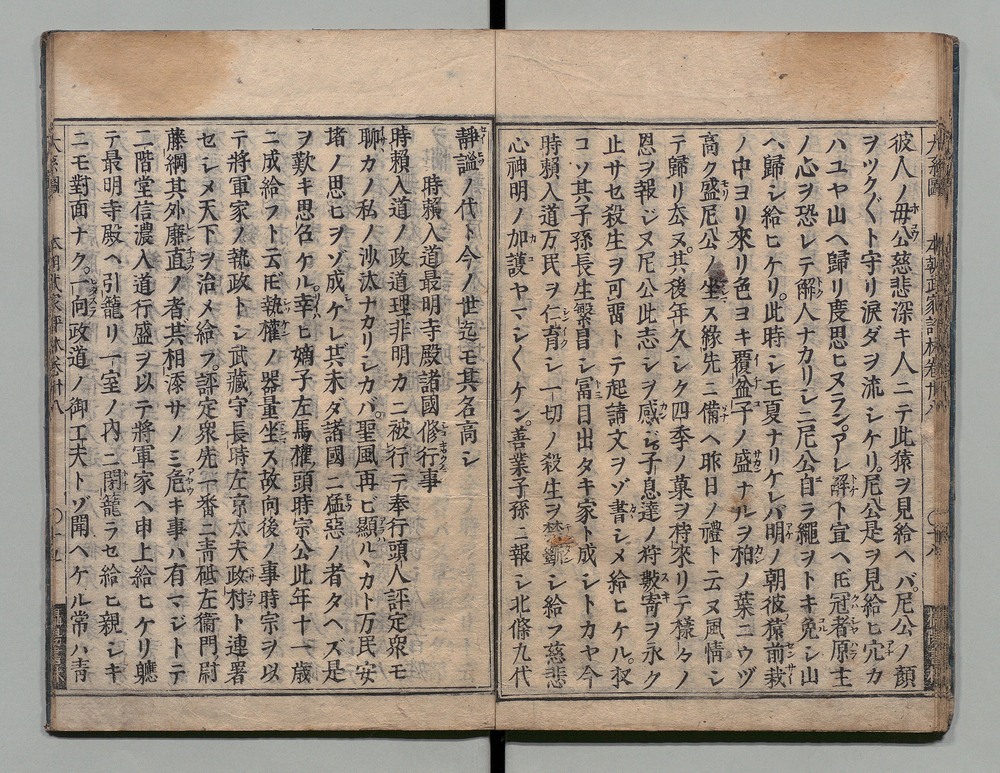 彼人ノ母公慈悲深キ人ニテ此猿ヲ見給ヘバ。尼公ノ顔
ヲツク〲ト守リ涙ダヲ流シケリ。尼公是ヲ見給ヒ穴カ
ハユヤ山ヘ帰リ度思ヒヌラン。アレ解ト宣ヘ𪜈冠者原主
ノ心ヲ恐レテ解人ナカリシニ尼公自ラ縄ヲトキ免シ山
ヘ歸シ給ヒケリ。此時シモ夏ナリケレバ明ノ朝彼猿前栽
ノ中ヨリ來リ色ヨキ覆盆子ノ盛ナルヲ柏ノ葉ニウヅ
高ク盛尼公ノ坐ス縁先ニ備ヘ昨日ノ禮ト云ヌ風情シ
テ歸リ厺ヌ。其後年久シク四季ノ菓ヲ持來リテ様々ノ
恩ヲ報ジヌ尼公此志シヲ感ジ子息達ノ狩數寄ヲ永ク
止サセ殺生ヲ可畱トテ起請文ヲゾ書シメ給ヒケル。扠
コソ其子孫長生繁昌シ冨目出タキ家ト成シトカヤ今
時賴入道万民ヲ仁育シ一切ノ殺生ヲ禁斷シ給フ慈悲
心神明ノ加護ヤマシ〱ケン。善業子孫ニ報シ北條九代
靜謐ノ代ト今ノ世迄モ其名高シ
時賴入道最明寺殿諸國修行事
時賴入道ノ政道理非明カニ被行テ奉行頭人評定衆モ
聊カノ私ノ沙汰ナカリシカバ。聖風再ビ顯ルヽカト万民安
堵ノ思ヒヲゾ成ケレ𪜈未ダ諸國ニ猛惡ノ者タヘズ是
ヲ歎キ思召ケル。幸ヒ嫡子左馬權頭時宗公此年十一歳
ニ成給フト云𪜈執權ノ器量坐ス故向後ノ事時宗ヲ以
テ將軍家ノ執政トシ武藏守長時左京太夫政村ト連署
セシメ天下ヲ治メ給フ。評定衆先一番ニ青砥左衞門尉
藤綱其外廉直ノ者共相添サノミ危キ事ハ有マジトテ
二階堂信濃入道行盛ヲ以テ將軍家ヘ申上給ヒケリ軈
テ最明寺殿ヘ引籠リ一室ノ内ニ閉籠ラセ給ヒ親シキ
ニモ對面ナク。一向政道ノ御工夫トゾ聞ヘケル常ハ青